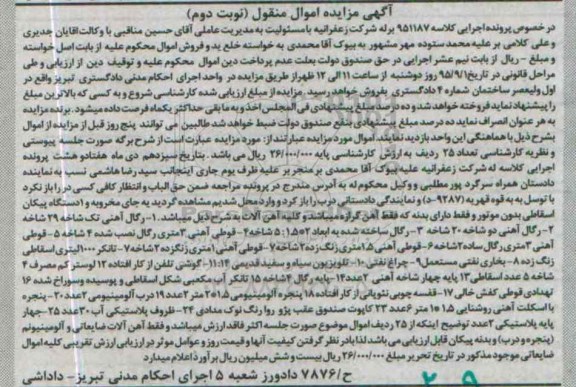 آگهی مزایده اموال منقول (نوبت دوم)
در خصوص پرونده اجرایی کلاسه ۹۵۱۱۸۷ برله شرکت زعفرانیه با مسئولیت به مدیریت عاملی آقای حسین مناقبی با وکالت آقایان جدیری
و علی کلامی بر علیه محمد ستوده مهر مشهور به بیوک آقا محمدی به خواسته خلع ید و فروش اموال محکوم علیه از بابت اصل خواسته
و مبلغ - ریال از بابت نیم عشر اجرایی در حق صندوق دولت بعلت عدم پرداخت دین اموال محکوم علیه و توقیف دین از ارزیابی و طی
مراحل قانونی در تاریخ ۹۵/۹/۱ روز دوشنبه از ساعت ۱۱ الی ۱۲ ظهر از طریق مزایده در واحد اجرای احکام مدنی دادگستری تبریز واقع در
اول ولیعصر ساختمان شماره ۴ دادگستری بفروش خواهد رسید. مزایده از مبلغ ارزیابی شده کارشناسی شروع و به کسی که بالاترین مبلغ
را پیشنهاد نماید فروخته خواهد شد و ده درصد مبلغ پیشنهادی فی المجلس اخذ و به مابقی حداکثر یکماه فرصت داده میشود. برنده مزایده
به هر عنوان انصراف نماید ده درصد مبلغ پیشنهادی بنفع صندوق دولت ضبط خواهد شد طالبین می توانند پنج روز قبل از مزایده از اموال
بشرح ذیل با هماهنگی این واحد بازدید نمایند. اموال مورد مزایده عبارتند از: مورد مزایده عبارت است از شرح برگه صورت جلسه پیوستی
و نظریه کارشناسی تعداد ۲۵ ردیف به ارزش کارشناسی پایه ۲۶/۰۰۰/۰۰۰ ریال می باشد. بتاریخ سیزدهم دی ماه هفتاد و هشت پرونده
اجرایی کلاسه له شرکت زعفرانیه علیه بیوک آقا محمدی بر منجر بر علیه ظرف یوم جاری اینجانب سید رضا هاشمی نسب به نماینده
دادستان همراه سرگرد پور مطلبی و وکیل محکوم له به آدرس مندرج در پرونده مراجعه ضمن حق الباب و انتظار کافی کسی در را باز نکرد
با توسل به قوه قهریه (۹۲۸۷-د) و نمایندگی دادستانی درب را باز کرد و وارد محل شدیم مشاهده گردید یه جای مخروبه و ۱ دستگاه پیکان
اسقاطی بدون موتور و فقط دارای بدنه که فقط آهن گرازه میباشد و کلیه آهن آلات به شرح ذیل میباشد. ۱- رگال آهنی تک شاخه ۲۹ شاخه
۲- رگال آهنی دو شاخه ۲۰ شاخه ۳- رگال ساخته شده به ابعاد ۲×۱.۵ : ۵ شاخه ۴- قوطی آهنی ۳ متری رگال نصب شده ۴ شاخه ۵- قوطی
آهنی ۳ متری رگال ساده ۲ شاخه ۶- قوطی آهنی ۱.۵ متری زنگ زده ۲ شاخه ۷- قوطی آهنی ۱ متری زنگزده ۲ شاخه ۷- تانکر ۱۰۰۰ لیتری اسقاطی
زنگ زده ۸- بخاری نفتی مستعمل ۹- چراغ نفتی ۱۰- تلویزیون سیاه و سفید قدیمی ۱۴:۱۱- گوشی تلفن از کار افتاده ۱۲ لوستر کم مصرف ۴
شاخه ۵ عدد اسقاطی ۱۳ پایه چهار شاخه آهنی ۲ عدد ۱۴- پایه رگال ۴ شاخه ۱۵ تانکر آب مکعبی شکل اسقاطی و پوسیده وسوراخ شده ۱۶
تهدادی قوطی کفش خالی ۱۷- قفسه چوبی نئوپانی از کار افتاده ۱۸ پنجره آلومینیومی ۱.۵×۲ متر ۲ عدد ۱۹ درب آلومینیومی ۲ عدد ۲۰- پنجره
با اسکلت آهنی روشنایی ۱.۵×۱ متر ۶ عدد ۲۳ کاپوت صندوق عقب پژو روآ رنگ نوک مدادی ۲۴- ظروف پلاستیکی آب ۳۰ عدد ۲۵-چهار
پایه پلاستیکی ۲ عدد توضیح اینکه از ۲۵ ردیف اموال موضوع صورت جلسه اکثر فاقد ارزش میباشد و فقط آهن آلات ضایعاتی و آلومینیوم
(پنجره و درب) و بدنه پیکان قابل ارزیابی می باشد لذا با در نظر گرفتن کیفیت آنها و قیمت روز و عوامل موثر در ارزیابی ارزش تقریبی کلیه اموال
ضایعاتی موجود مذکور در تاریخ تحریر مبلغ ۲۶/۰۰۰/۰۰۰ ریال بیست و شش میلیون ریال برآورد اعلام میدارد
ح/۷۸۷۶ دادورز شعبه ۵ اجرای احکام مدنی تبریز- داداشی
۲۰۹